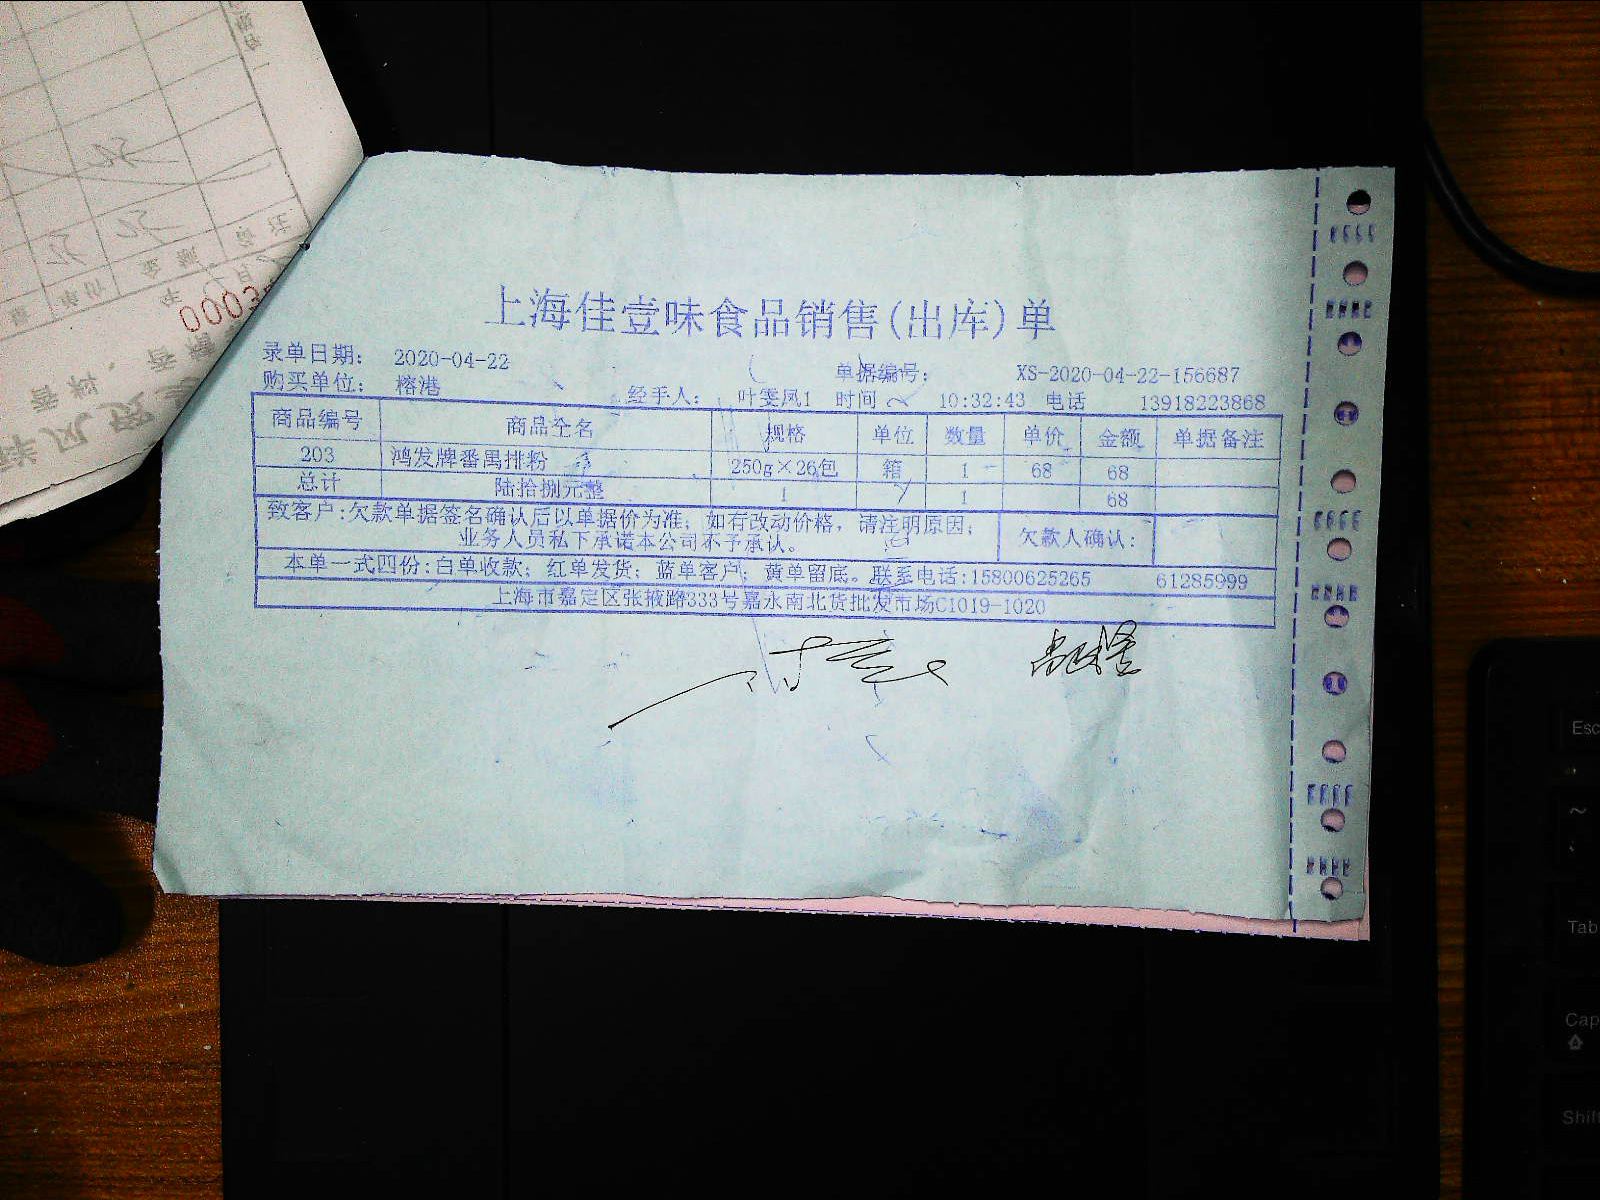 上海佳壹味食品销售(出库)单
录单日期： 2020-04-22 单据编号： XS-2020-04-22-156687
购买单位： 榕港 经手人： 叶雯凤1 时间 10:32:43 电话 13918223868
商品编号 商品全名 规格 单位 数量 单价 金额 单据备注
203 鸿发牌番禺排粉 250g×26包 箱 1 68 68
总计 陆拾捌元整 1 1 68
致客户:欠款单据签名确认后以单据价为准；如有改动价格，请注明原因；
业务人员私下承诺本公司不予承认。 欠款人确认：
本单一式四份:白单收款；红单发货；蓝单客户；黄单留底。联系电话:15800625265 61285999
上海市嘉定区张掖路333号嘉永南北货批发市场C1019-1020
Esc
~
Tab
Cap
Shift